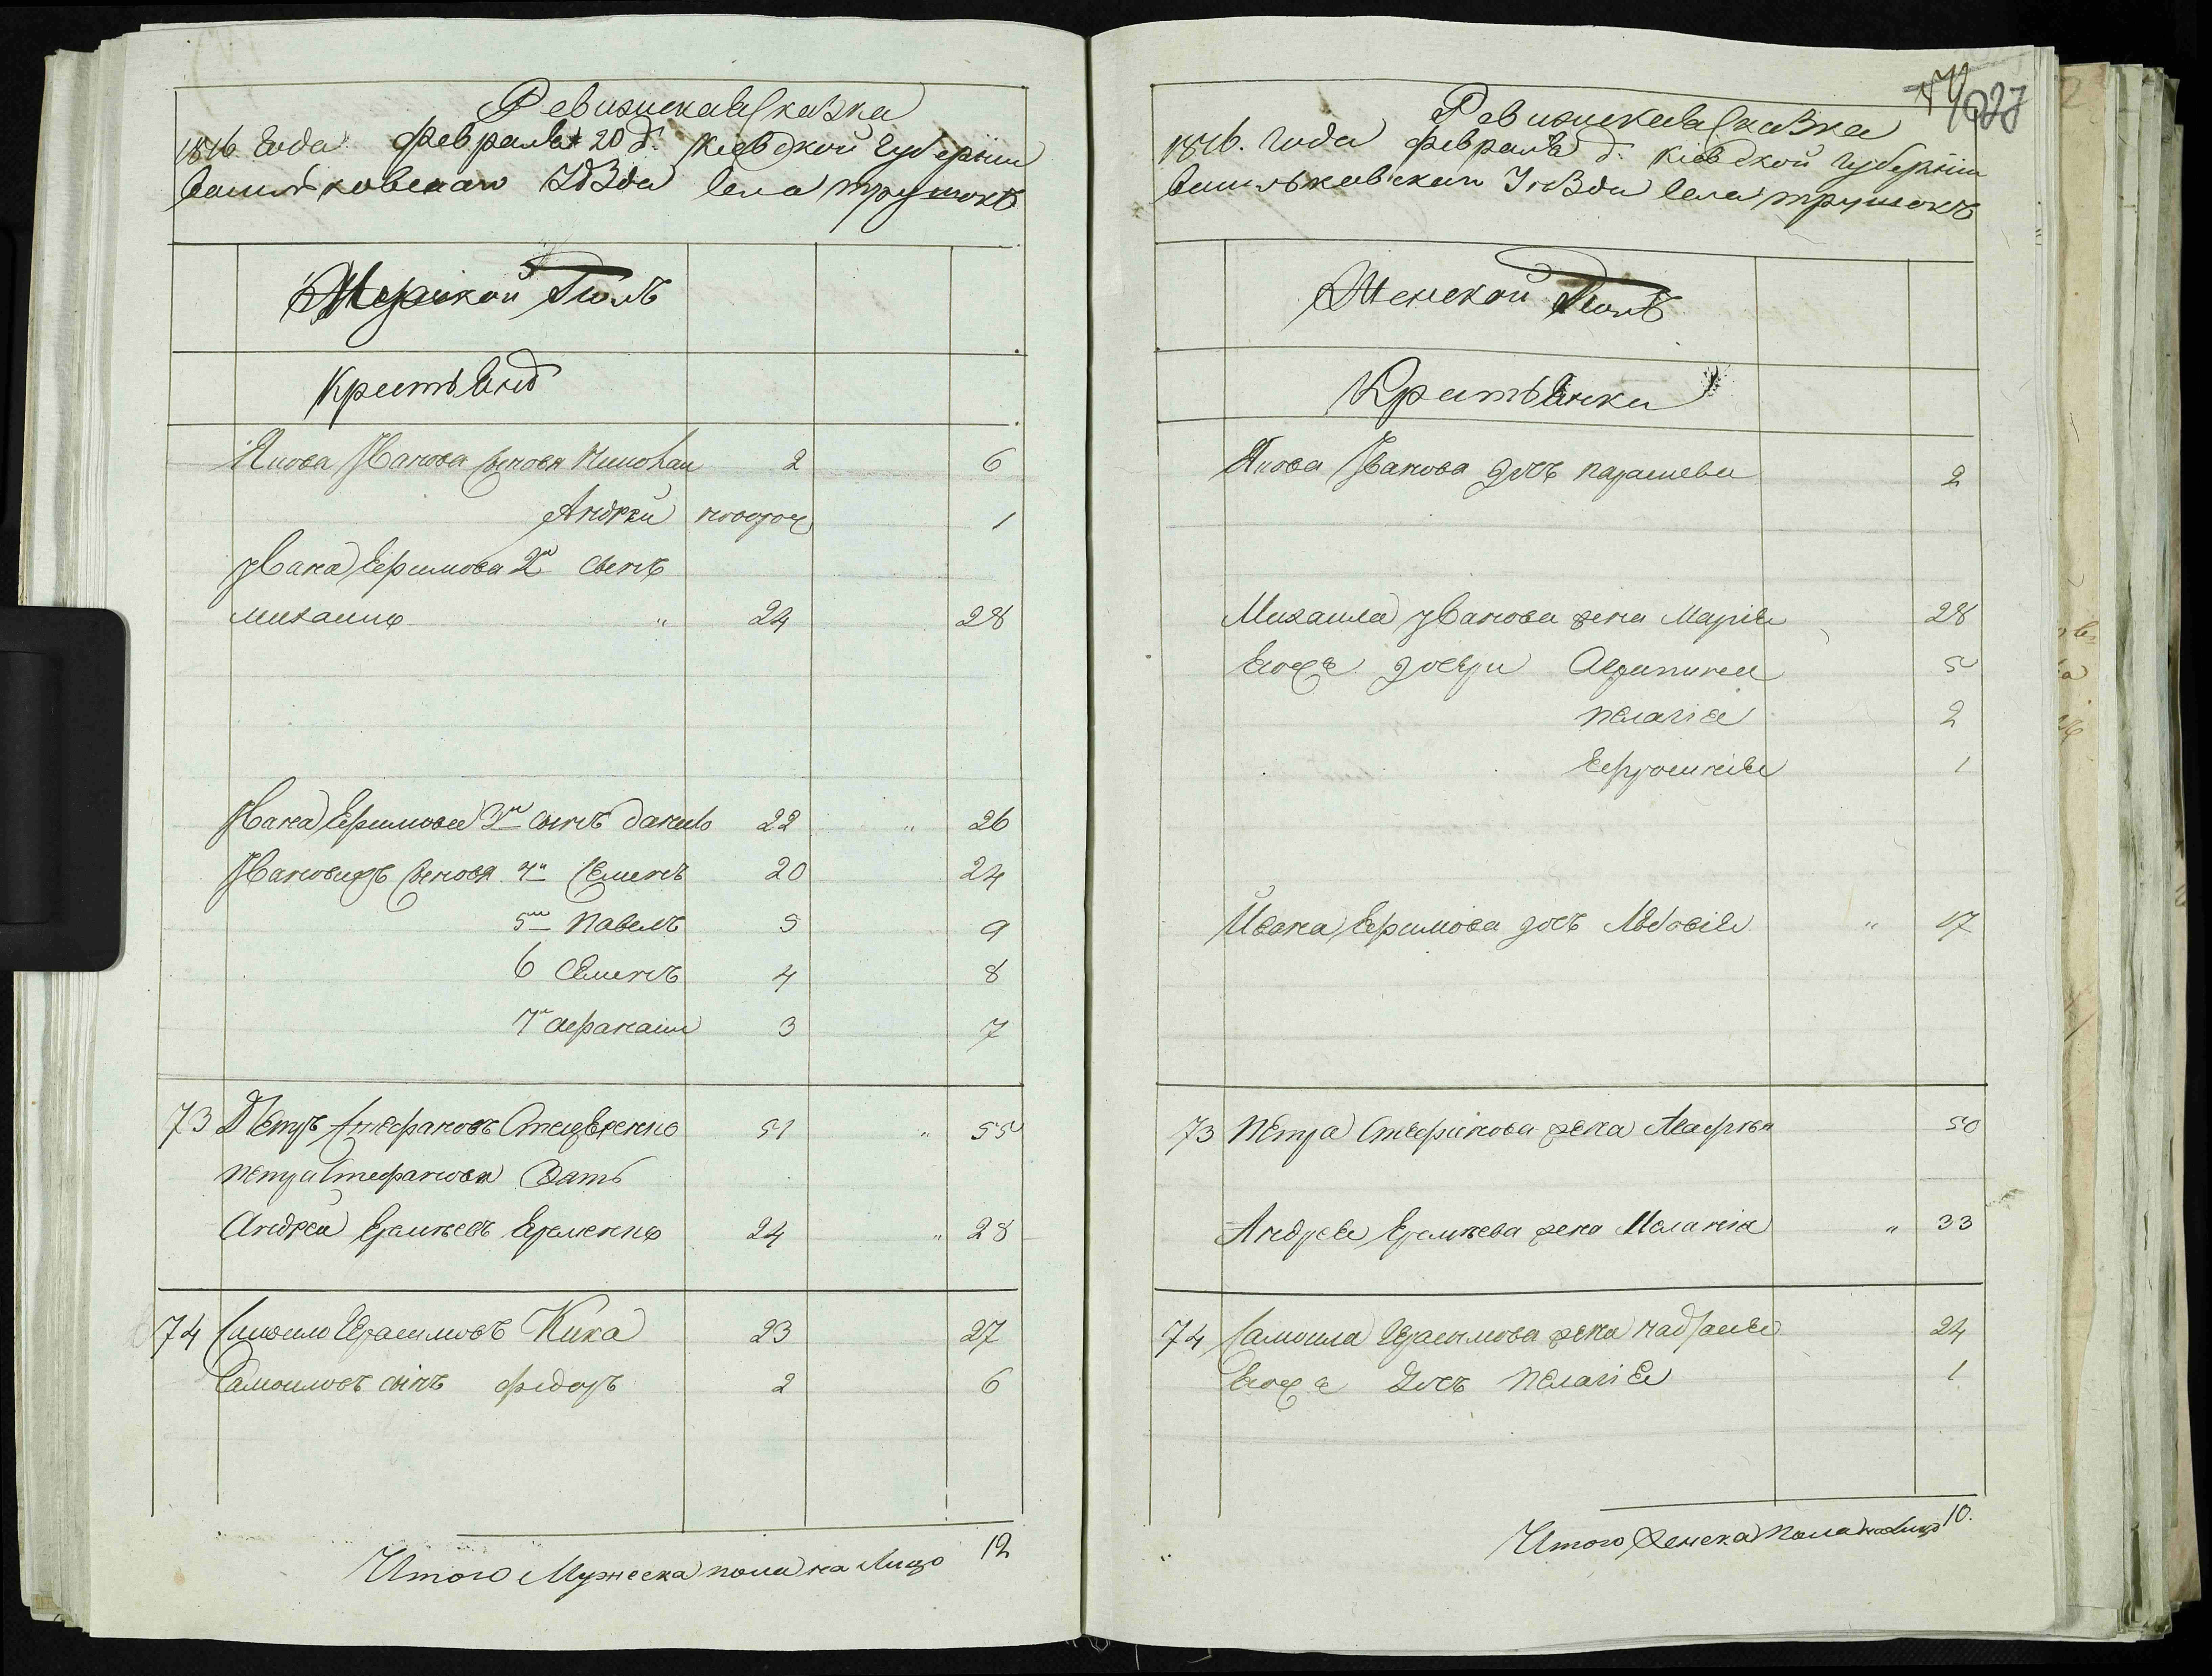 Ревизиская Сказка
1816 Года февраля 20 д. Киевской Губерніи
Васильковскаго Уѣзда Села трушокъ
Мужской Полъ
Крестьянѣ
Якова Иванова сыновя 2 6
Андрей новорож 1
Ивана Ефимова 2й сынъ
михаило " 24 28
Ивана Ефимова 3й сынъ данило 22 " 26
Ивановыхъ сыновя 4й Семенъ 20 24
5й павелъ 5 9
6 Семенъ 4 8
7й афанасій 3 7
73 Петръ Стефановъ 51 " 55
петра Стефанова Зять
Андрей Еремѣевъ Еременко 24 " 28
74 Самоило Герасимовъ Кика 23 27
Самоиловъ синъ федоръ 2 6
Итого Мужеска пола на Лицо 12
1027
Ревизиская Сказка
1816. Года февраля д. Киевской Губерніи
Васильковскаго Уѣзда Села трушокъ
Женской Полъ
Крестьянки
Якова Иванова дочъ парасковія 2
Михаила Иванова жена Марія 28
Еюже дочери Агрипина 5
пелагія 2
Ефросинія 1
Ивана Ефимова дочъ " 17
73 петра Стефанова жена Агафія 50
Андрея Еремѣева жена Меланія " 33
74 Самоила Герасимова жена 24
Еюже дочъ пелагія 1
Итого Женска пола на Лицо 10.